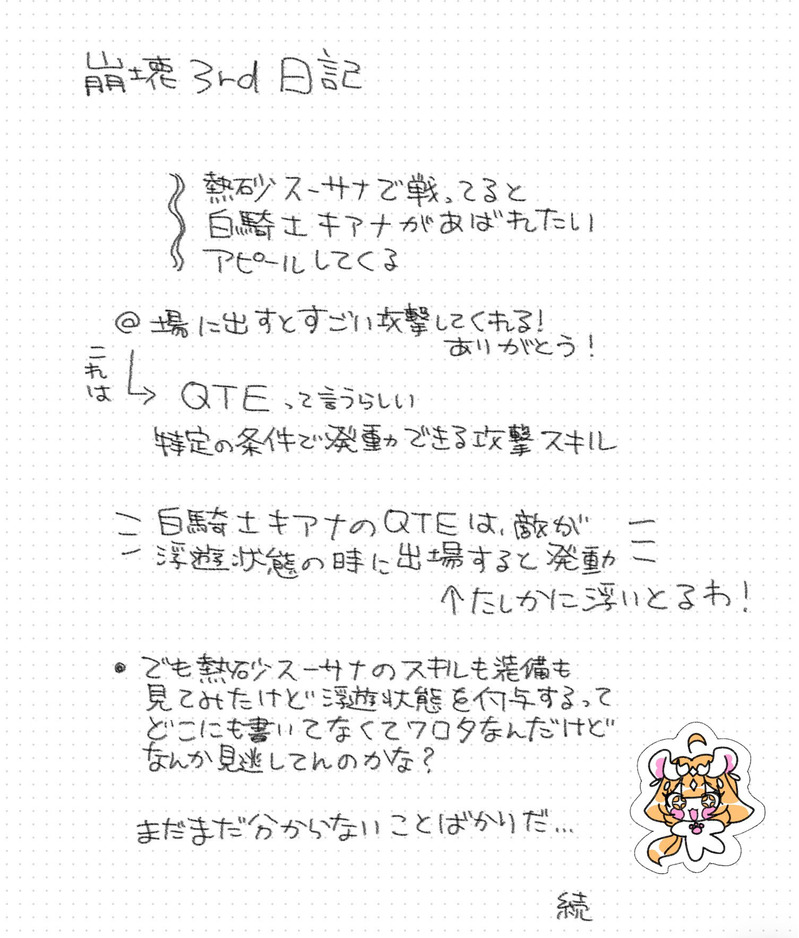 崩壊3rd 日記
熱砂スーサナで戦ってると
白騎士キアナがあばれたい
アピールしてくる
@ 場に出すとすごい攻撃してくれる!
ありがとう!
これは
↳ QTEって言うらしい
特定の条件で発動できる攻撃スキル
白騎士キアナのQTEは、敵が
浮遊状態の時に出場すると発動
↑たしかに浮いとるわ!
• でも熱砂スーサナのスキルも装備も
見てみたけど浮遊状態を付与するって
どこにも書いてなくてワロタなんだけど
なんか見逃してんのかな?
まだまだ分からないことばかりだ...
続